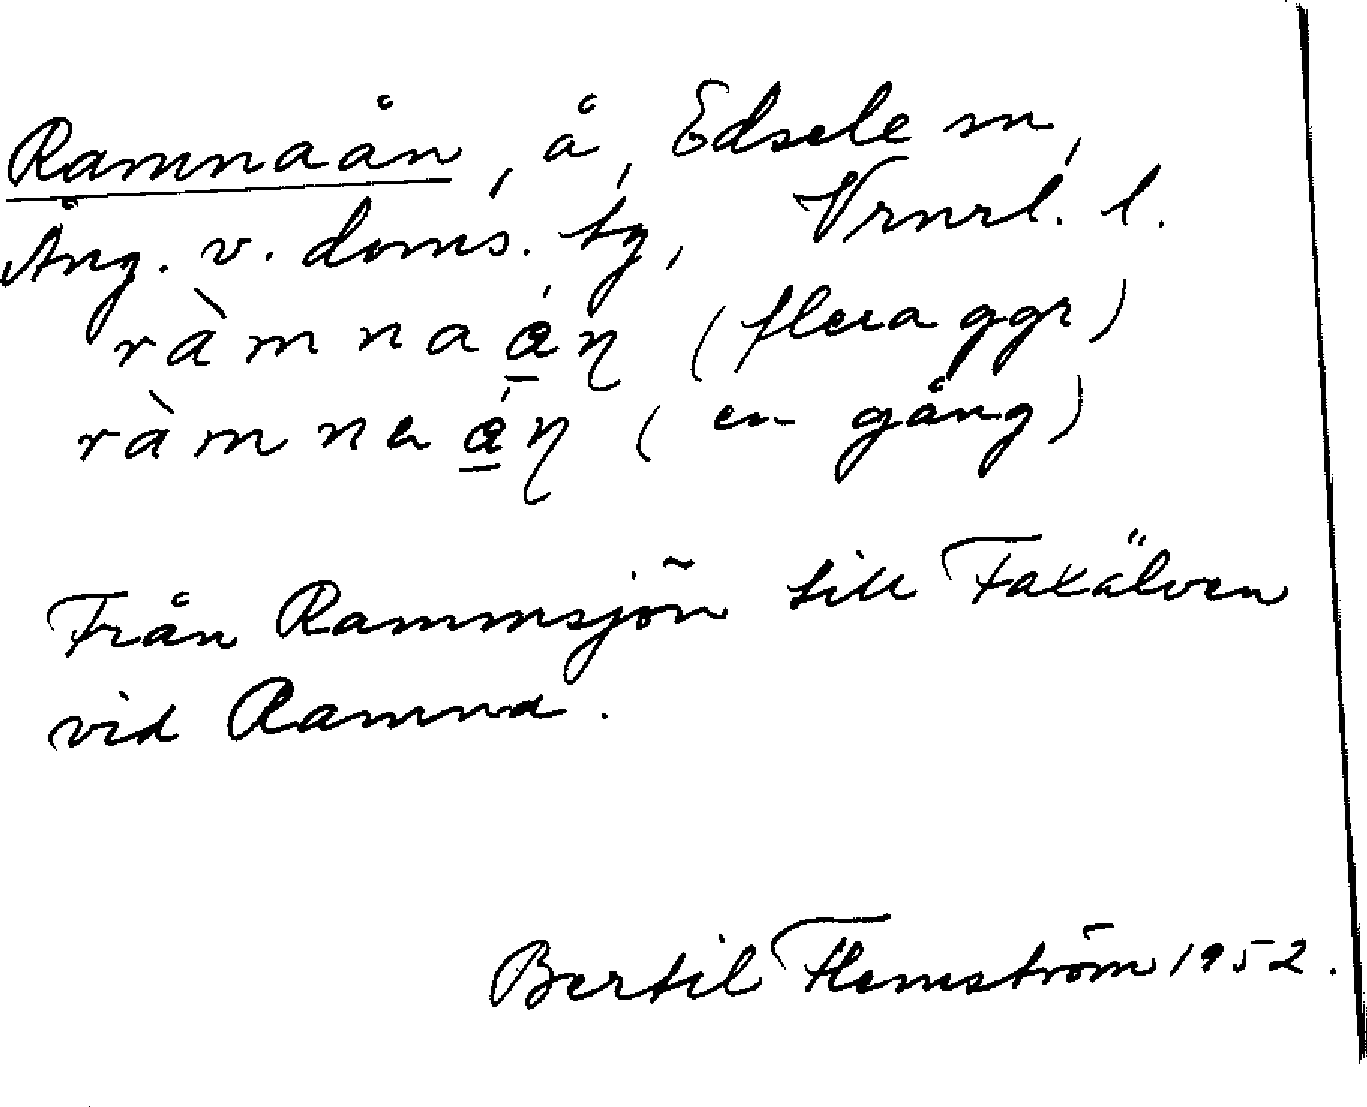 Ramnaån, å, Edsele sn,
Ång. v. doms. tg, Vrnrl. l.
ràmnaá̱n̥ (flera ggr)
ràmnaá̱n̥ (en gång)
Från Rammsjön till Faxälven
vid Ramna.
Bertil Flemström 1952.